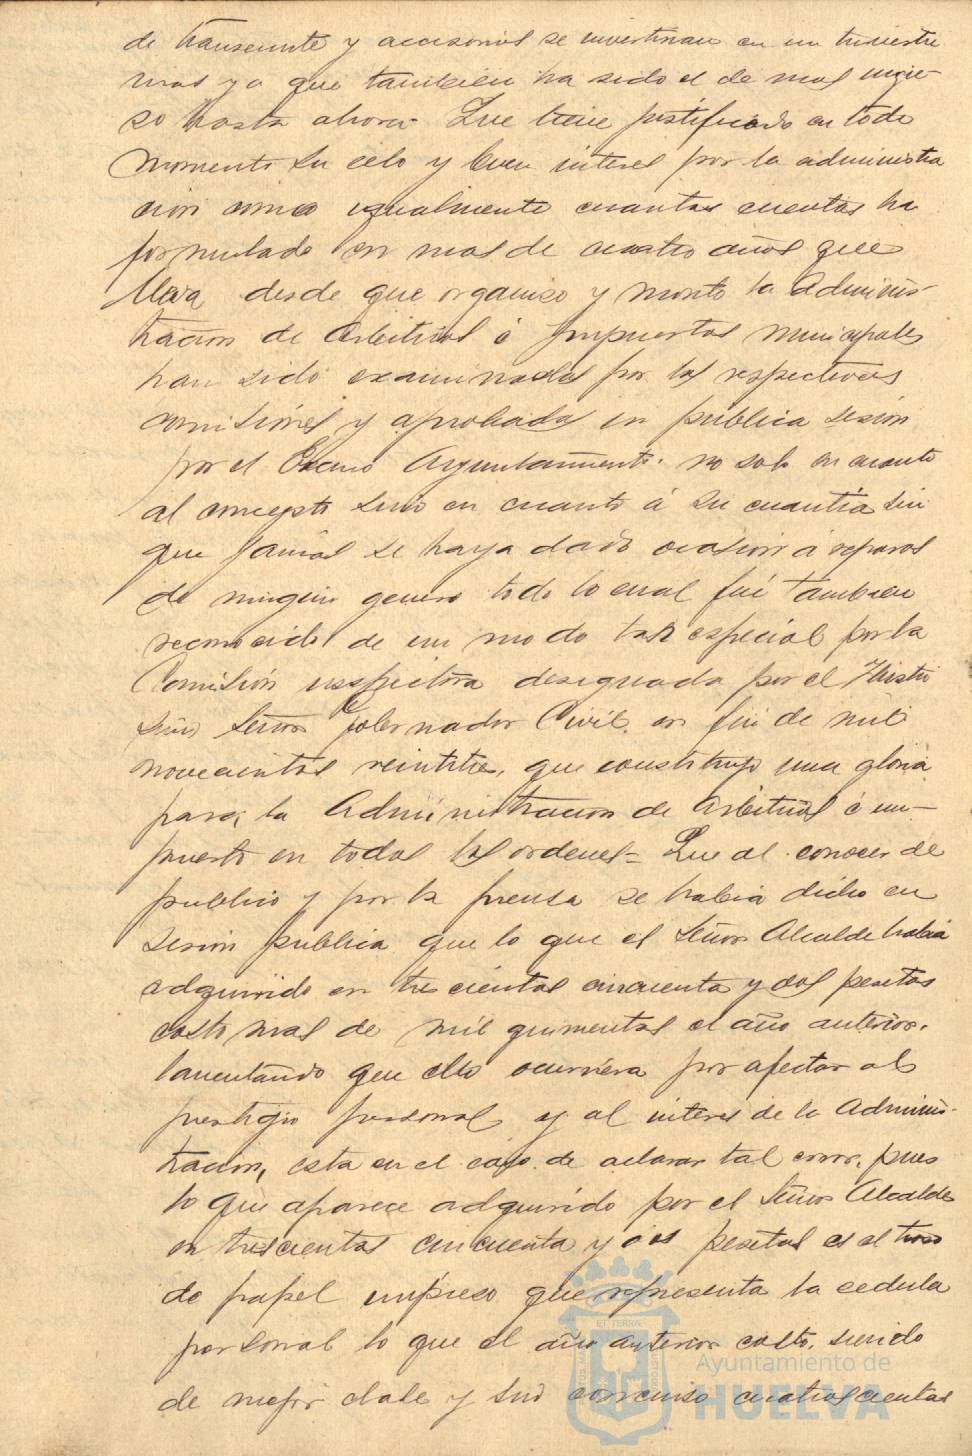 de transeunte y accesorios se invertirian en un trimestre
mas ya que tambien ha sido el de mas ingre-
so hasta ahora- Que tiene justificado en todo
momento su celo y buen interes por la administra
cion como igualmente cuantas cuentas ha
formulado en mas de cuatro años que
lleva desde que organizo y monto la Adminis-
tracion de Arbitrios é impuestos municipales
han sido examinadas por las respectivas
comisiones y aprobadas en publica sesion
por el Excmo Ayuntamiento. no solo en cuanto
al concepto sino en cuanto á su cuantia sin
que jamas se haya dado ocasion á reparos
de ningun genero todo lo cual fué tambien
reconocido de un modo tan especial por la
Comisión inspectora designada por el Ilustri
simo Señor Gobernador Civil en fin de mil
novecientos veintitres, que constituyó una gloria
para la Administracion de Arbitrios é im-
puesto en todos los ordenes= Que al conocer de
publico y por la prensa se habia dicho en
sesion publica que lo que el Señor Alcalde habia
adquirido en trescientas cincuenta y dos pesetas
costo mas de mil quinientas el año anterior.
lamentando que ello ocurriera por afectar al
prestigio personal y al interes de la Adminis-
tracion, esta en el caso de aclarar tal error, pues
lo que aparece adquirido por el Señor Alcalde
en trescientas cincuenta y dos pesetas es el
de papel impreso que representa la cedula
personal lo que el año anterior costo, siendo
de mejor clase y sin concurso cuatrocientas
ET TERRÆ
Ayuntamiento de
HUELVA